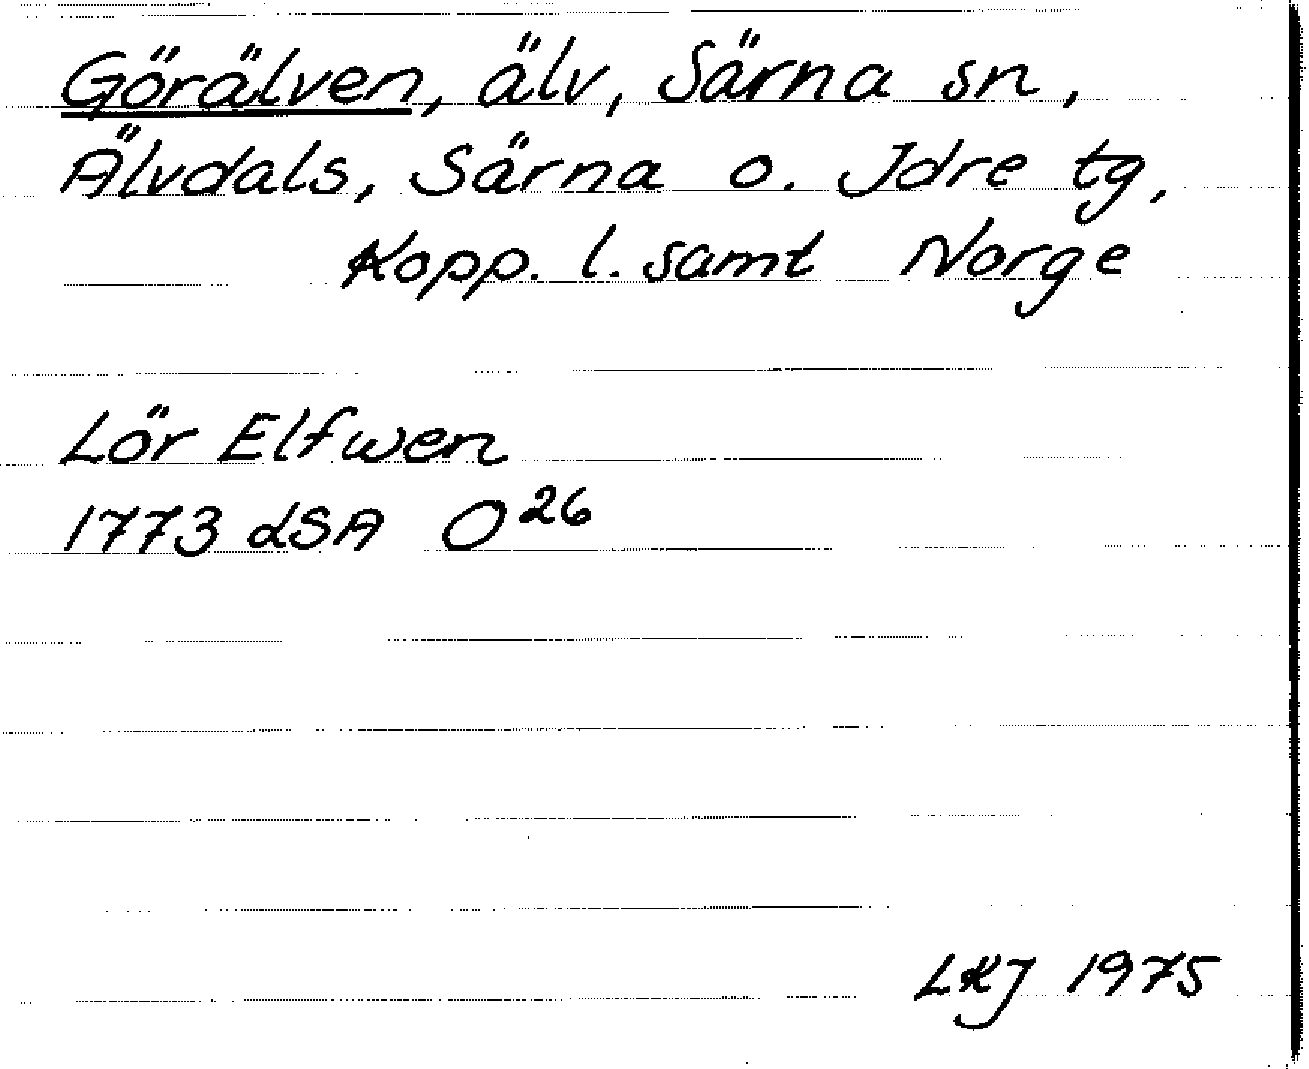 Görälven, älv, Särna sn,
Älvdals, Särna o. Idre tg,
Kopp. l. samt Norge
Lör Elfwen
1773 LSA O26
LKJ 1975